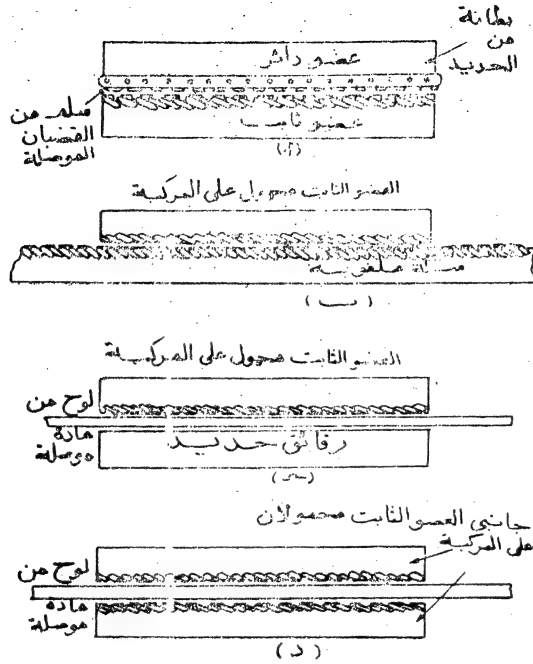 بطانة
من
الحديد
عضو دائر
فيلم من
القضبان
الموصلة
عضو ثابت
(أ)
العضو الثابت محمول على المركبة
سكة ملفوفة
(ب)
العضو الثابت محمول على المركبة
لوح من
مادة
موصلة
رقائق حديد
(جـ)
جانبي العضو الثابت محمولان
على المركبة
لوح من
مادة
موصلة
(د)